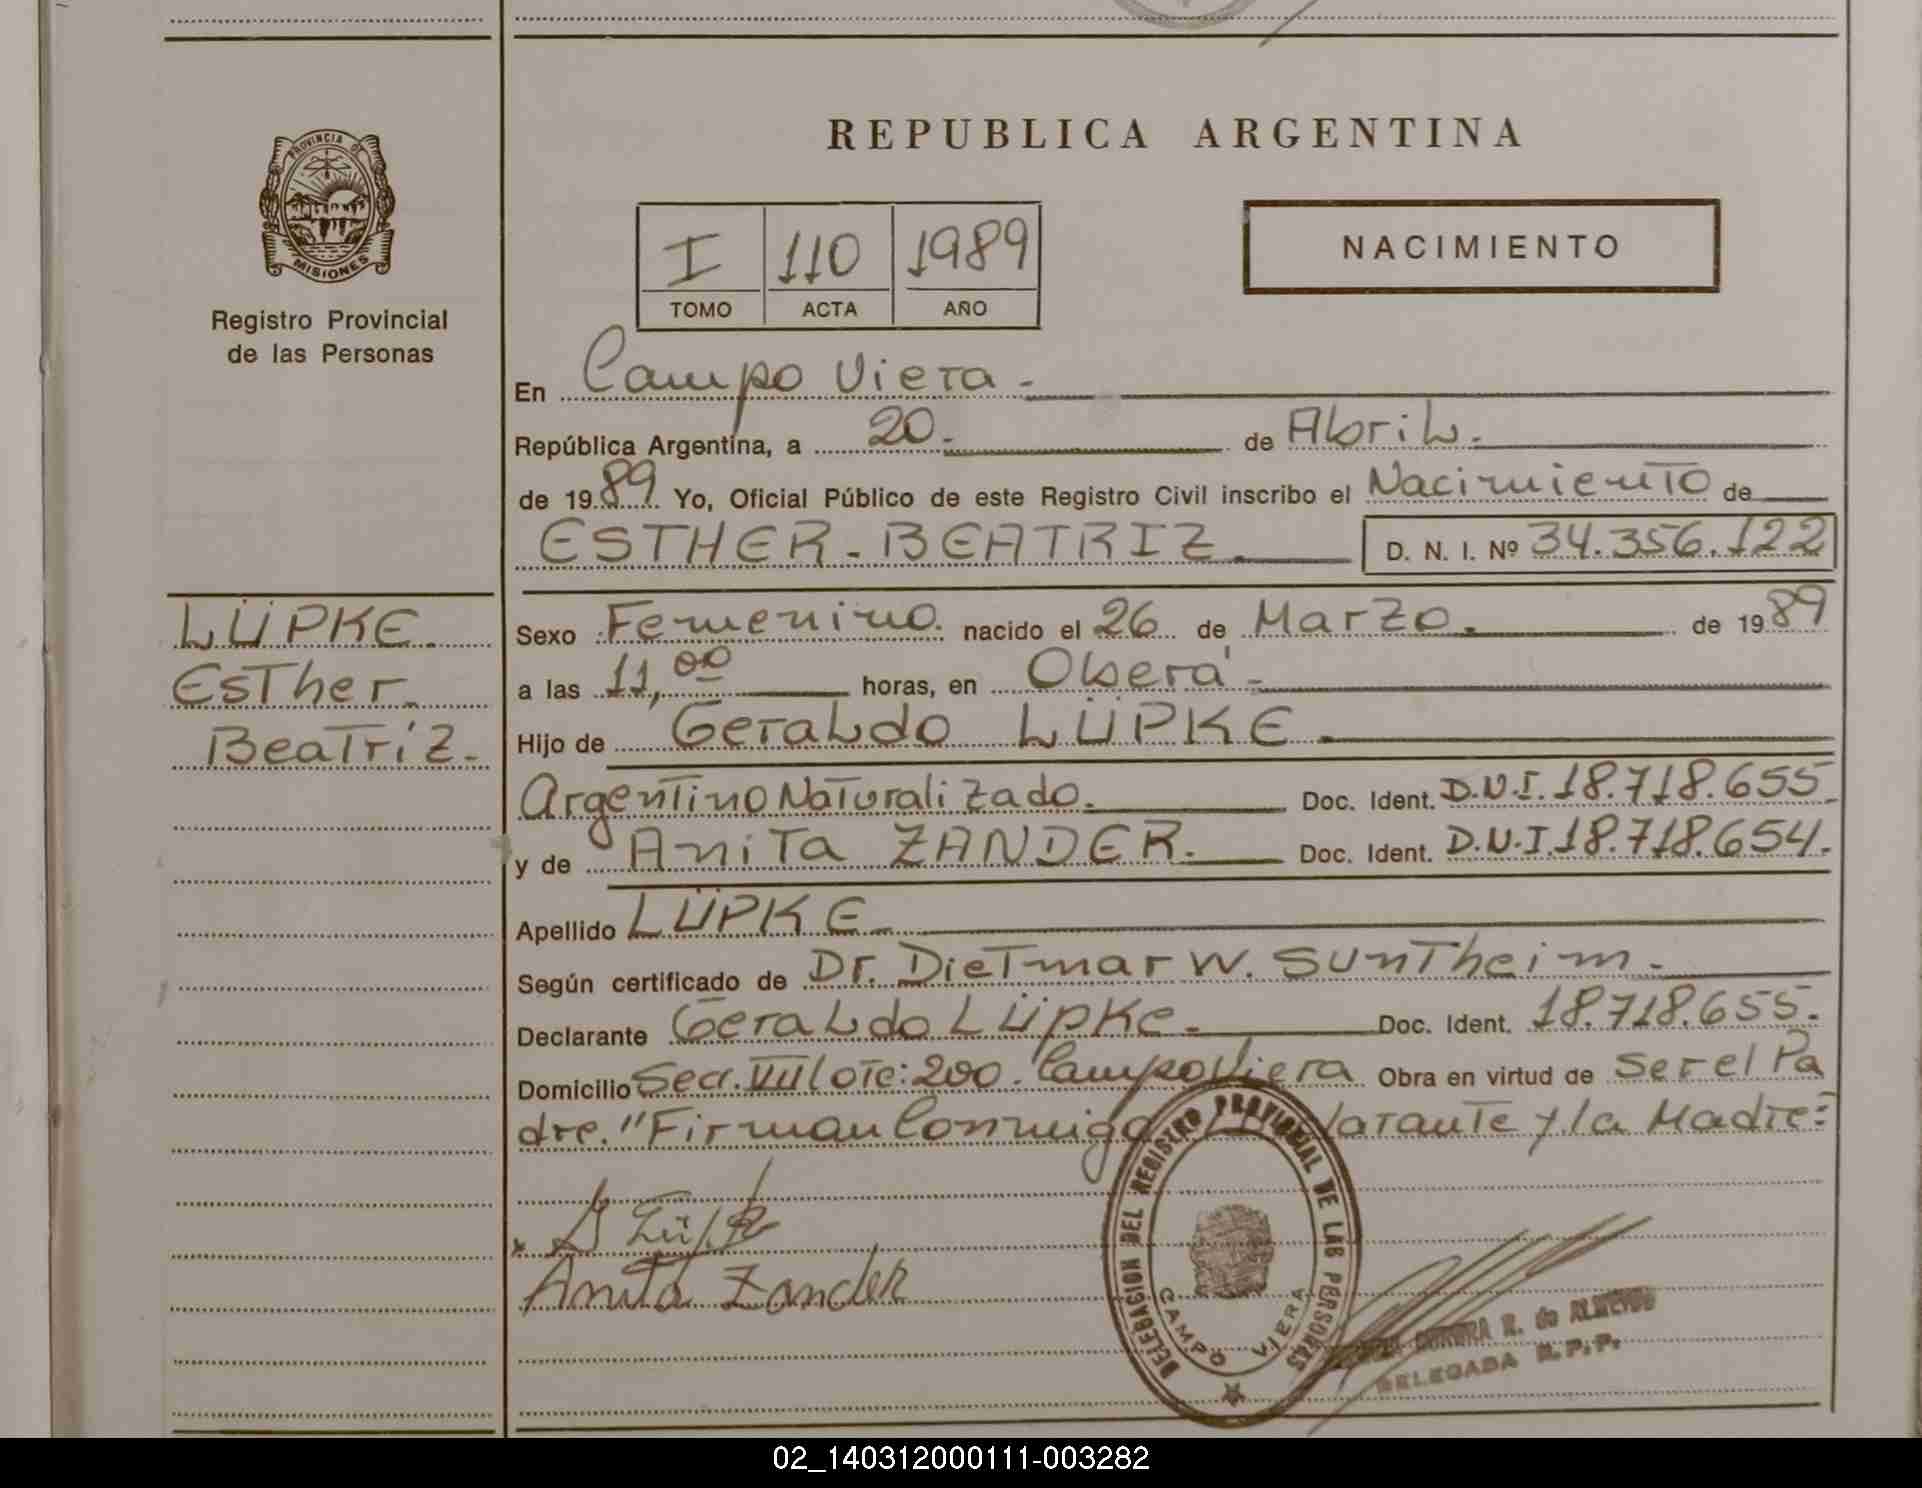 PROVINCIA DE
MISIONES
Registro Provincial
de las Personas
REPUBLICA ARGENTINA
I 110 1989
TOMO ACTA AÑO
NACIMIENTO
En Campo Viera.
República Argentina, a 20. de Abril.
de 1989. Yo, Oficial Público de este Registro Civil inscribo el Nacimiento de
ESTHER-BEATRIZ. D. N. I. Nº 34.356.122
LÜPKE.
Esther
Beatríz.
Sexo Femenino. nacido el 26 de Marzo. de 1989
a las 11,00 horas, en Oberá.
Hijo de Geraldo LÜPKE.
Argentino Naturalizado. Doc. Ident. D.N.I. 18.718.655
y de Anita ZANDER. Doc. Ident. D.N.I. 18.718.654.
Apellido LÜPKE
Según certificado de Dr. Dietmar W. Suntheim.
Declarante Geraldo Lüpke. Doc. Ident. 18.718.655.
Domicilio Secc. VII lote: 200. Campo Viera Obra en virtud de ser el Pa
dre. "Firman Conmigo larante y la Madre:
G Lüpke
Anita Zander
DELEGACION DEL REGISTRO PROVINCIAL DE LAS PERSONAS
CAMPO VIERA
R. de ALMEIDA
DELEGADA R.P.P.
02_140312000111-003282